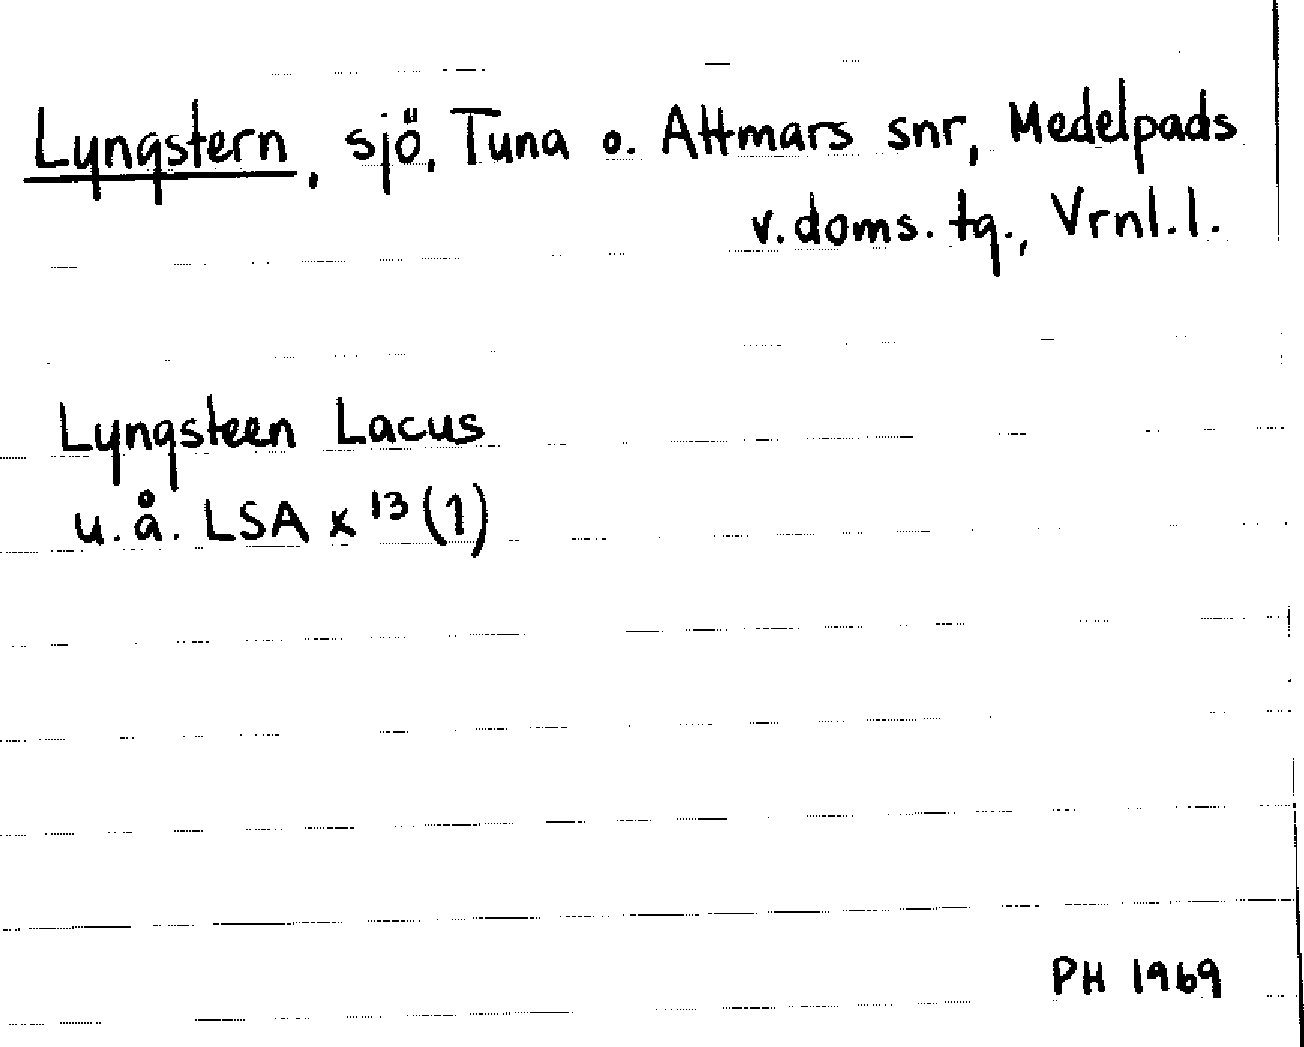 Lyngstern, sjö, Tuna o. Attmars snr, Medelpads
v. doms. tg., Vrnl. l.
Lyngsteen Lacus
u. å. LSA x 13 (1)
PH 1969